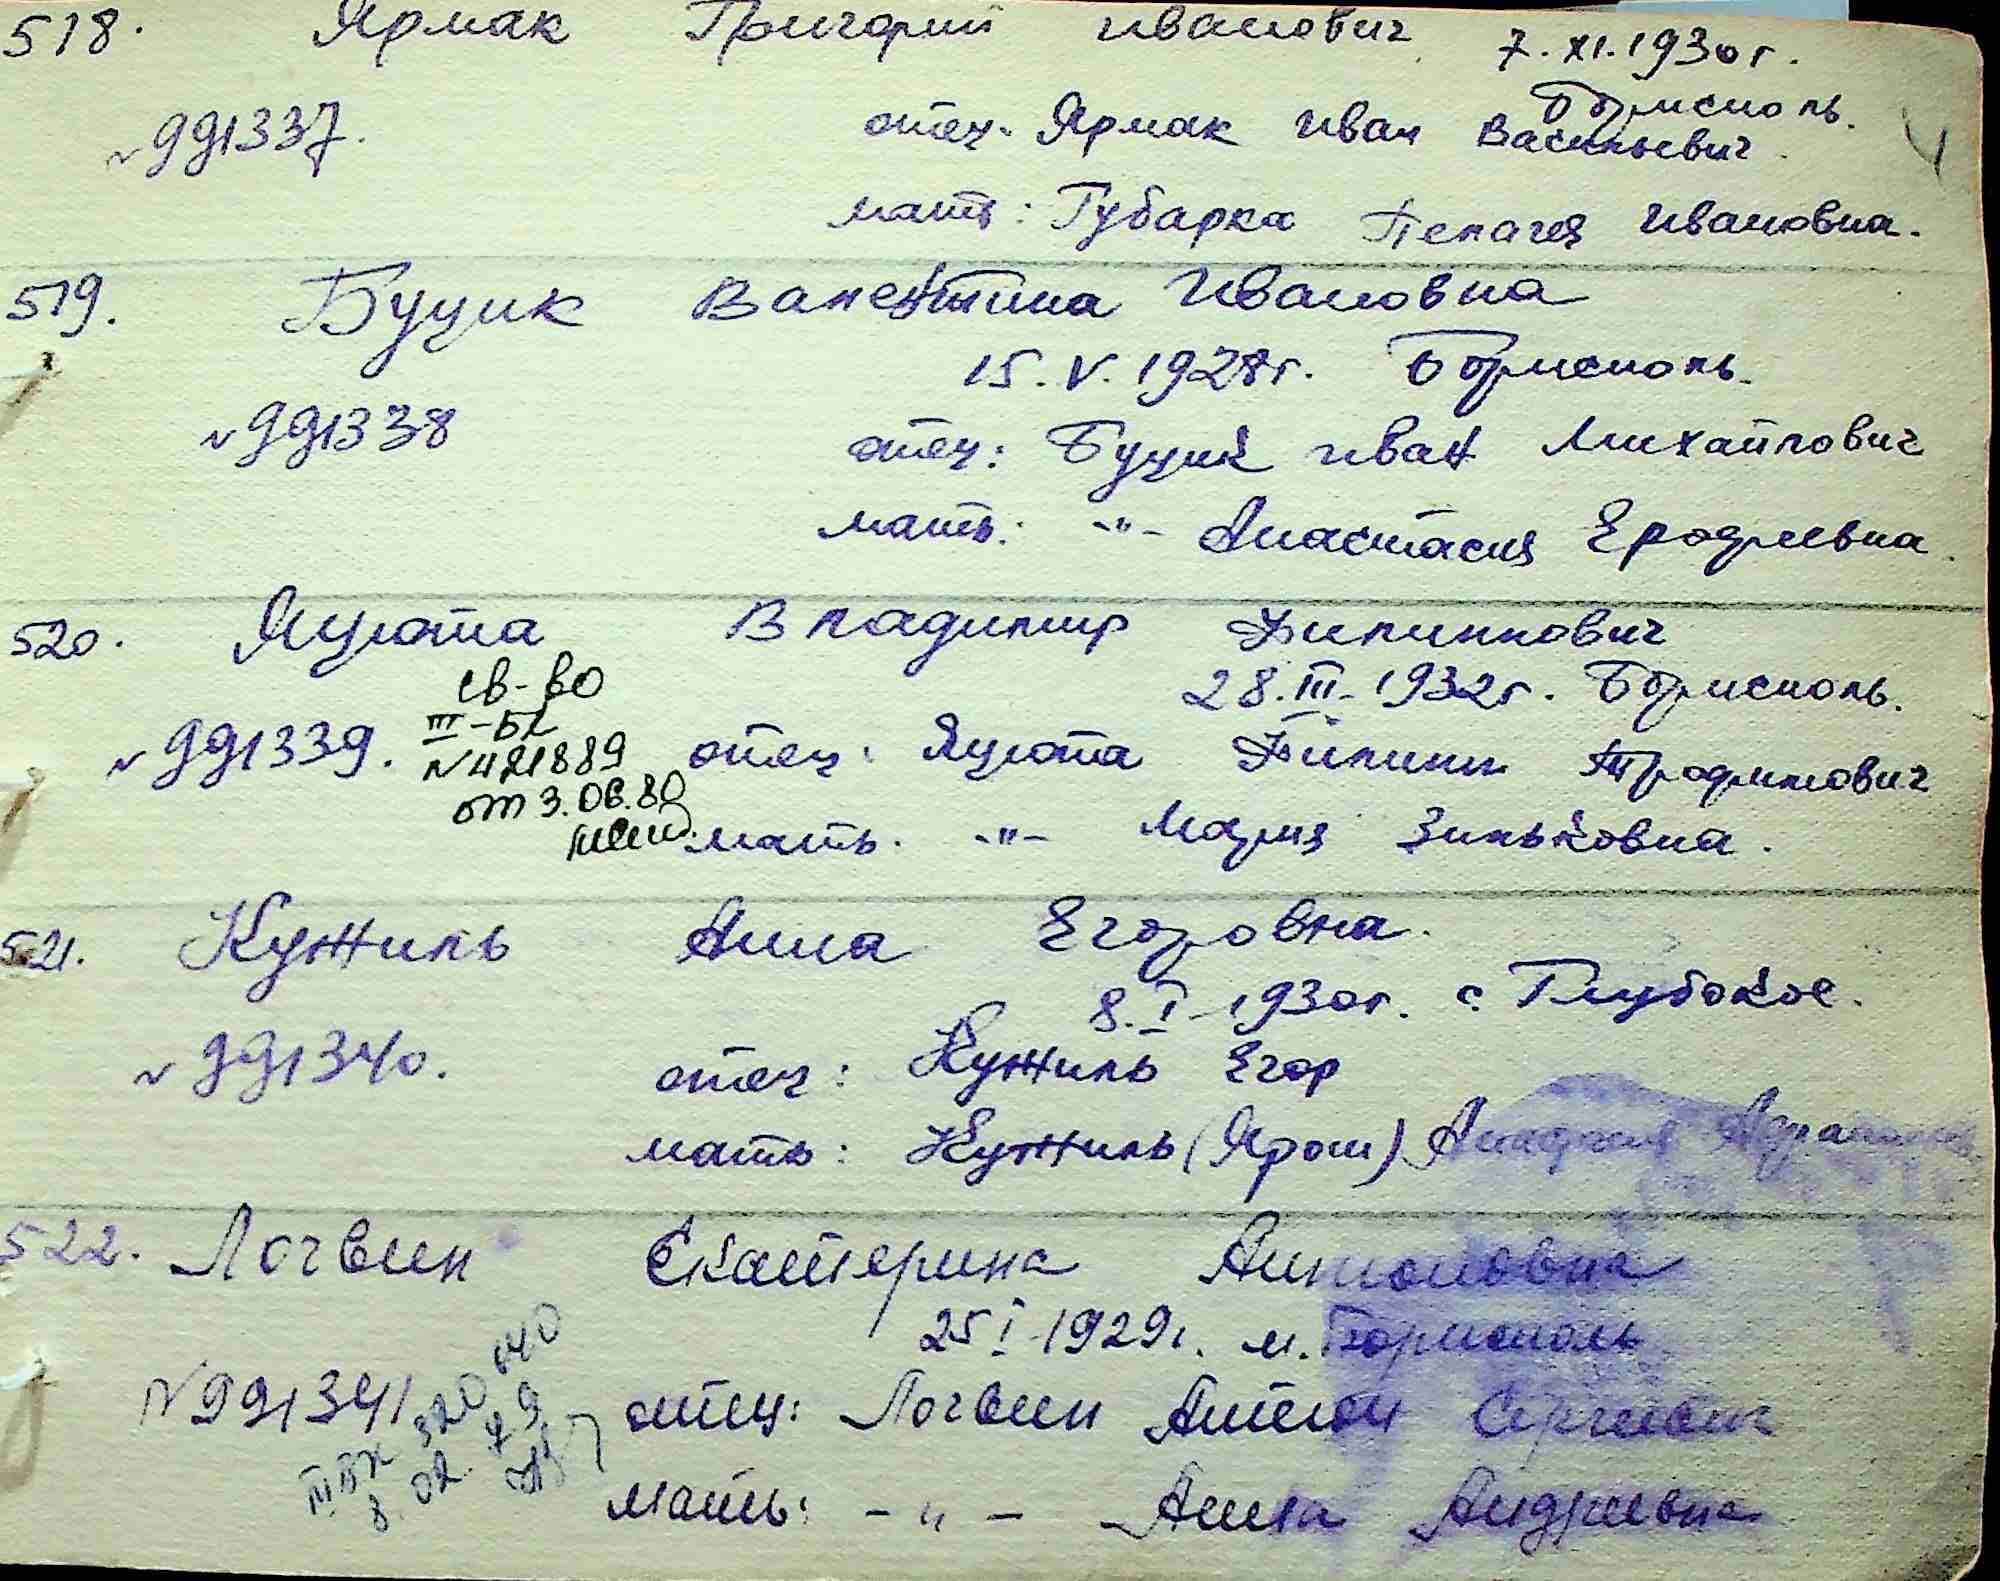 518. Ярмак Григорий Иванович 7.XI.1930г.
Борисполь.
№991337. отец. Ярмак Иван Васильевич.
мать: Губарка Пелагея Ивановна.
519. Буцик Валентина Ивановна
15.V.1928г. Борисполь.
№991338 отец: Буцик Иван Михайлович
мать: -"- Анастасия Еродиевна.
520. Яцюта Владимир Филиппович
св-во 28.III-1932г. Борисполь.
III-БК
№991339. отец: Яцюта Филипп Трофимович
№421889
от 3.06.80
мать. -"- Мария Зиньковна.
521. Кужиль Анна Егоровна.
8.I-1930г. с. Глубокое.
№991340. отец: Кужиль Егор
мать: Кужиль (Ярош)
522. Логвин Екатерина Антоновна
25 I-1929г. м. Борисполь
№991341 отец: Логвин Антон Сергеевич
320640
8.02.79
мать: -"- Анна Андреевна